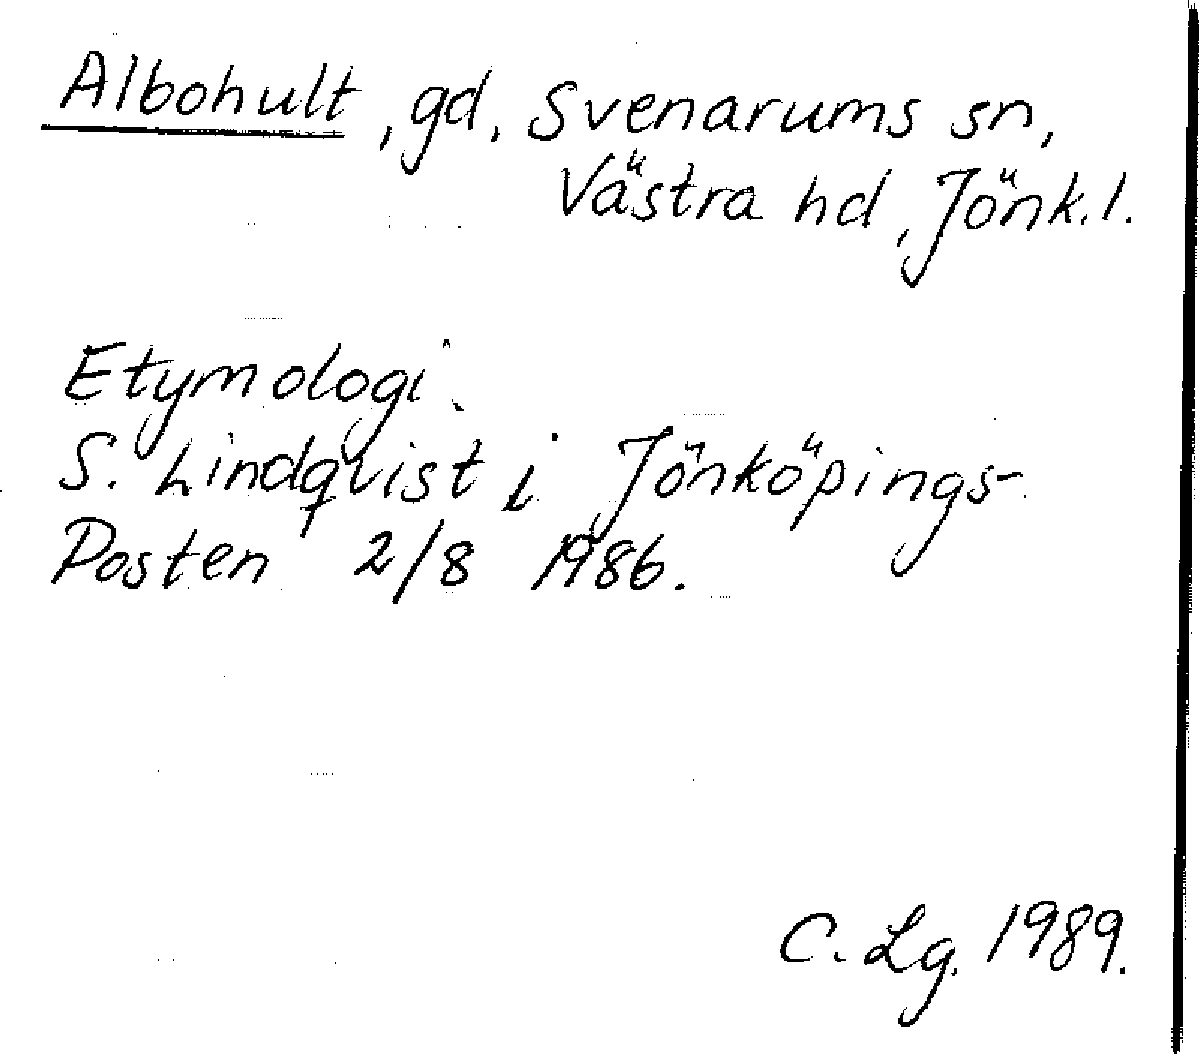 Albohult, gd, Svenarums sn,
Västra hd, Jönk. l.
Etymologi.
S. Lindqvist i Jönköpings-
Posten 2/8 1986.
C. Lg. 1989.